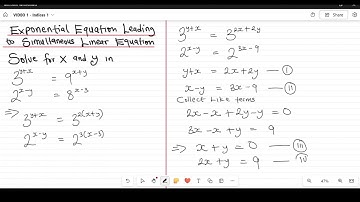 VIDEO 1 - Indices 1
Exponential Equation Leading
to Simultaneous Linear Equation
Solve for X and y in
3^{y+x} = 9^{x+y}
2^{x-y} = 8^{x-3}
⇒ 3^{y+x} = 3^{2(x+y)}
2^{x-y} = 2^{3(x-3)}
3^{y+x} = 3^{2x+2y}
2^{x-y} = 2^{3x-9}
y+x = 2x+2y — I
x-y = 3x-9 — II
Collect Like terms
2x-x+2y-y = 0
3x-x+y = 9
⇒ x+y = 0 — III
2x+y = 9 — IV